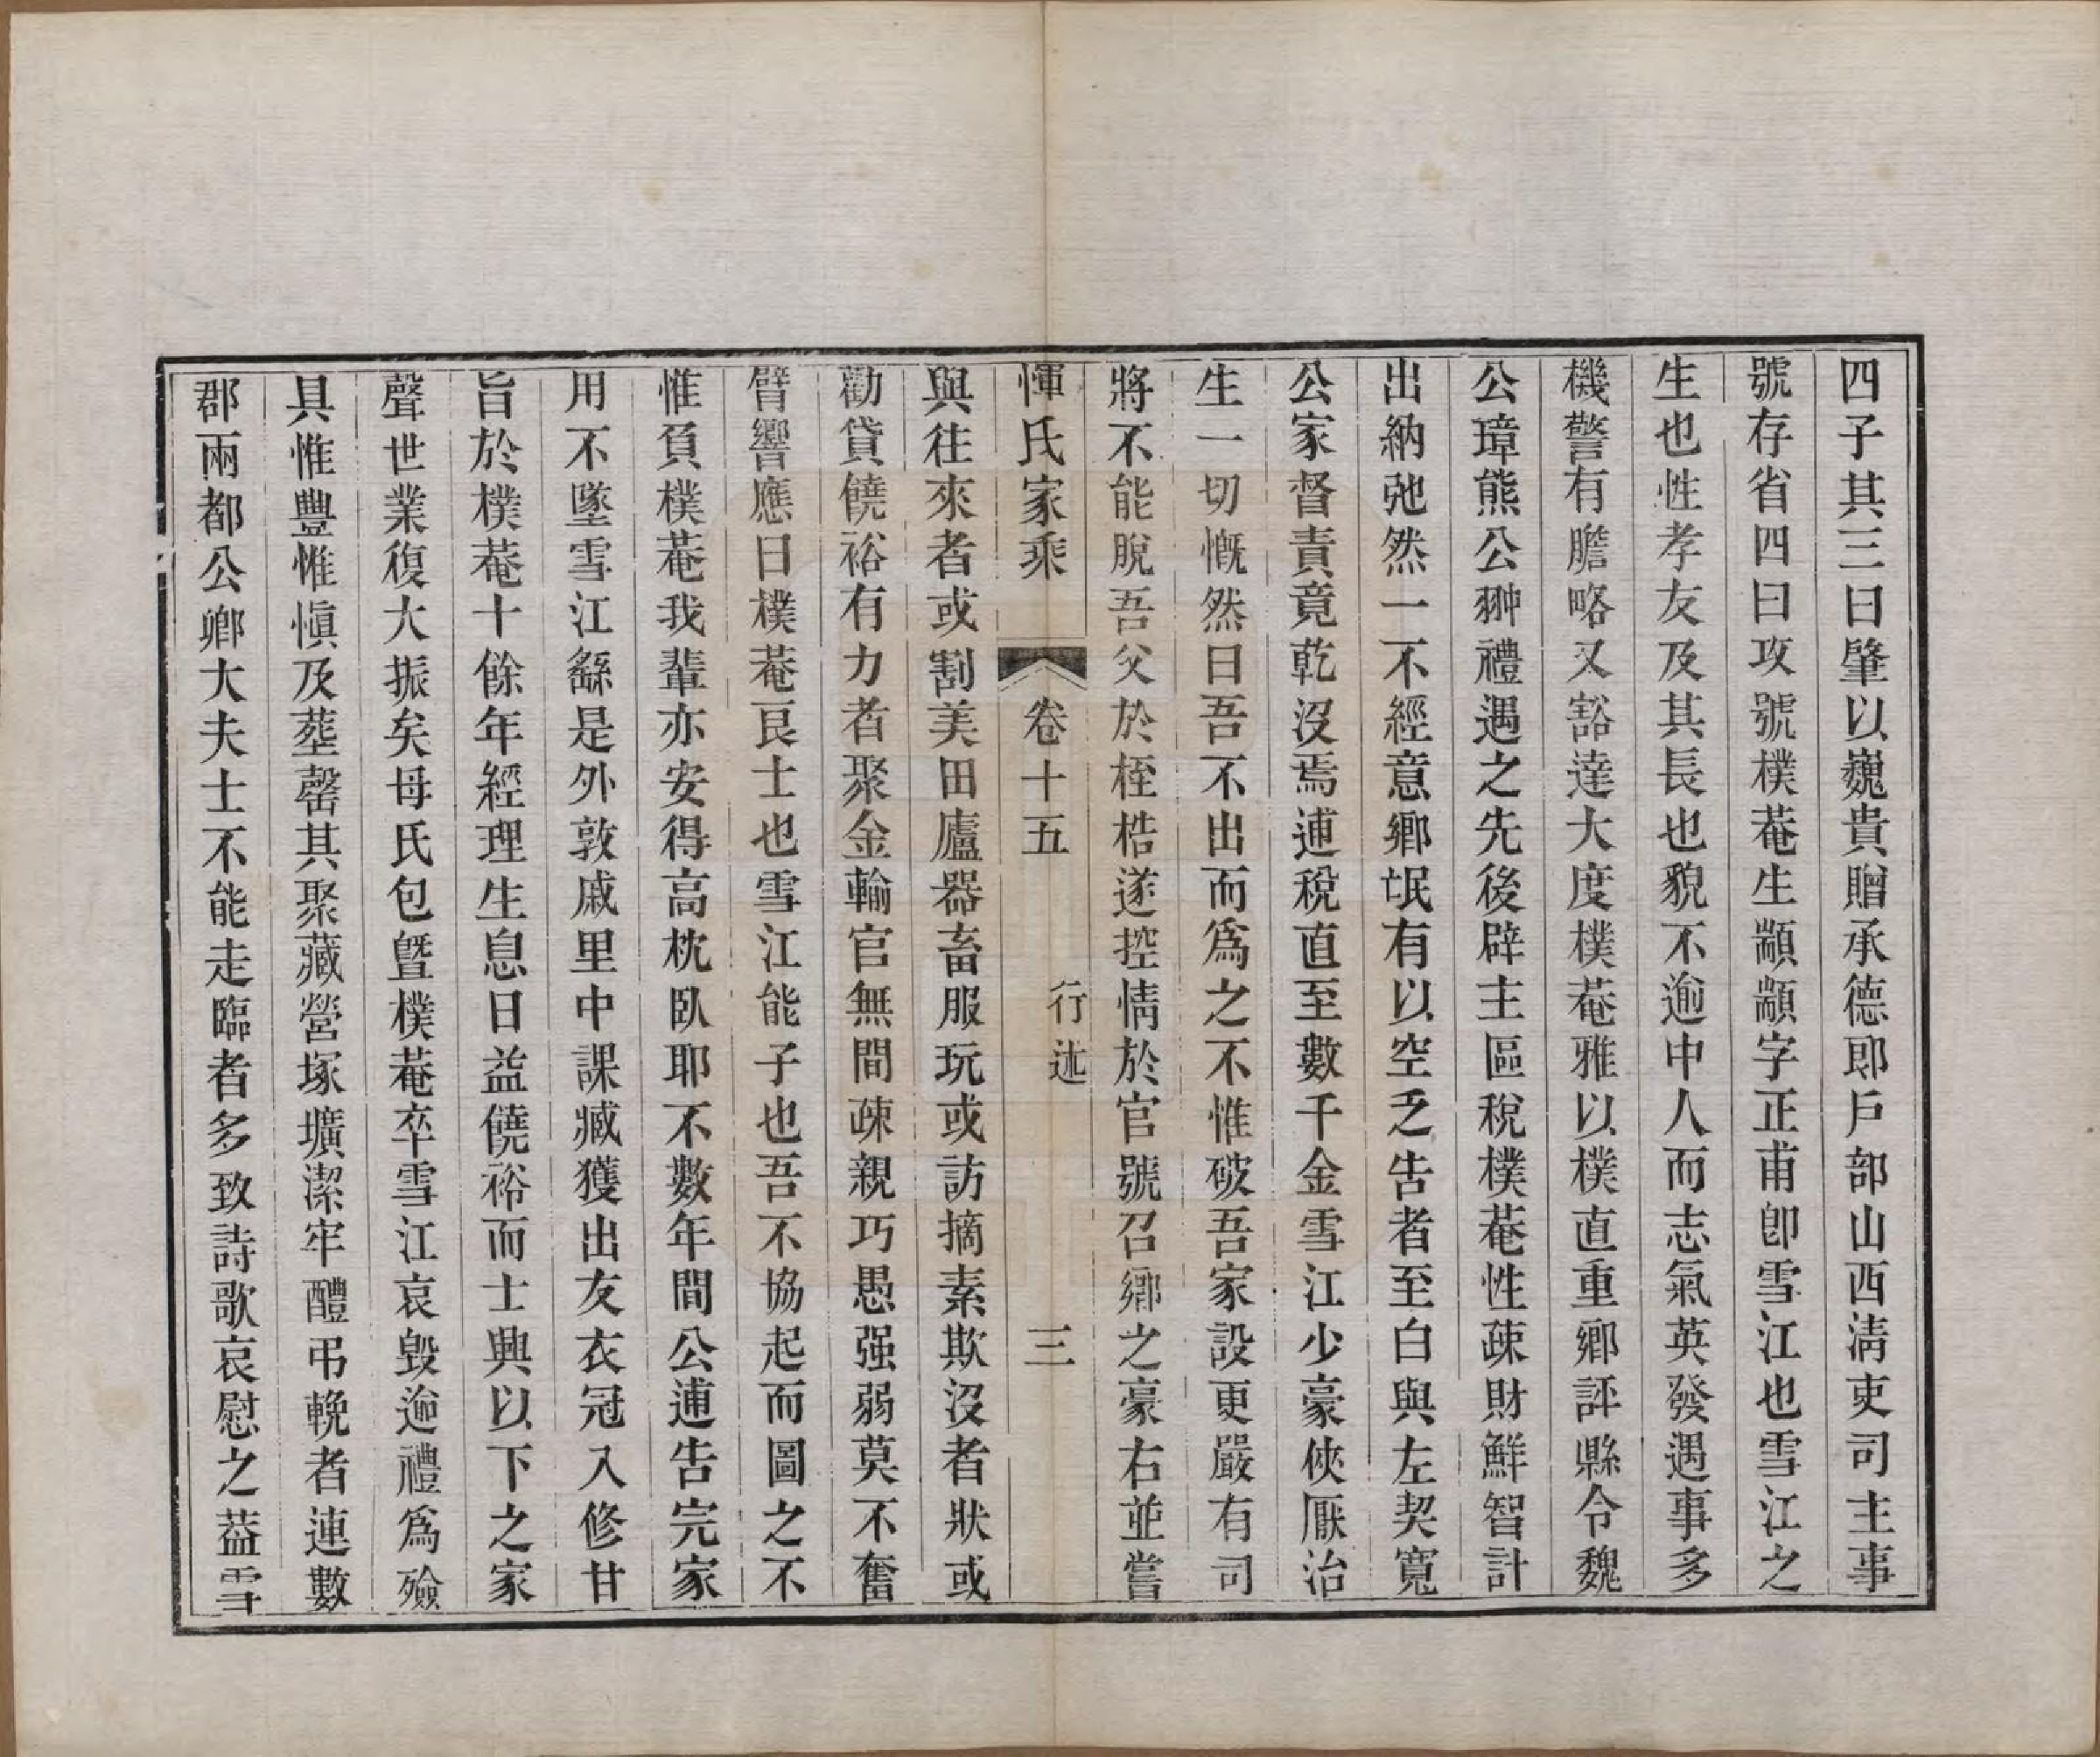 四子其三曰肇以巍貴贈承德郎戶部山西清吏司主事
號存省四曰攻號樸菴生顓顓字正甫卽雪江也雪江之
生也性孝友及其長也貌不逾中人而志氣英發遇事多
機警有膽略又豁達大度樸菴雅以樸直重鄉評縣令魏
公璋熊公翀禮遇之先後辟主區稅樸菴性疎財鮮智計
出納弛然一不經意鄉氓有以空乏告者至白與左契寬
公家督責竟乾沒焉逋稅直至數千金雪江少豪俠厭治
生一切慨然曰吾不出而爲之不惟破吾家設更嚴有司
將不能脫吾父於桎梏遂控情於官號召鄉之豪右並嘗
惲氏家乘 卷十五 行述 三
與往來者或割美田廬器畜服玩或訪摘素欺沒者狀或
勸貸饒裕有力者聚金輸官無間疎親巧愚强弱莫不奮
臂響應曰樸菴良士也雪江能子也吾不協起而圖之不
惟負樸菴我輩亦安得高枕臥耶不數年間公逋告完家
用不墜雪江繇是外敦戚里中課臧獲出友衣冠入修甘
旨於樸菴十餘年經理生息日益饒裕而士興以下之家
聲世業復大振矣母氏包曁樸菴卒雪江哀毀逾禮爲殮
具惟豐惟愼及塟罄其聚藏營塚壙潔牢醴弔輓者連數
郡兩都公卿大夫士不能走臨者多致詩歌哀慰之葢雪